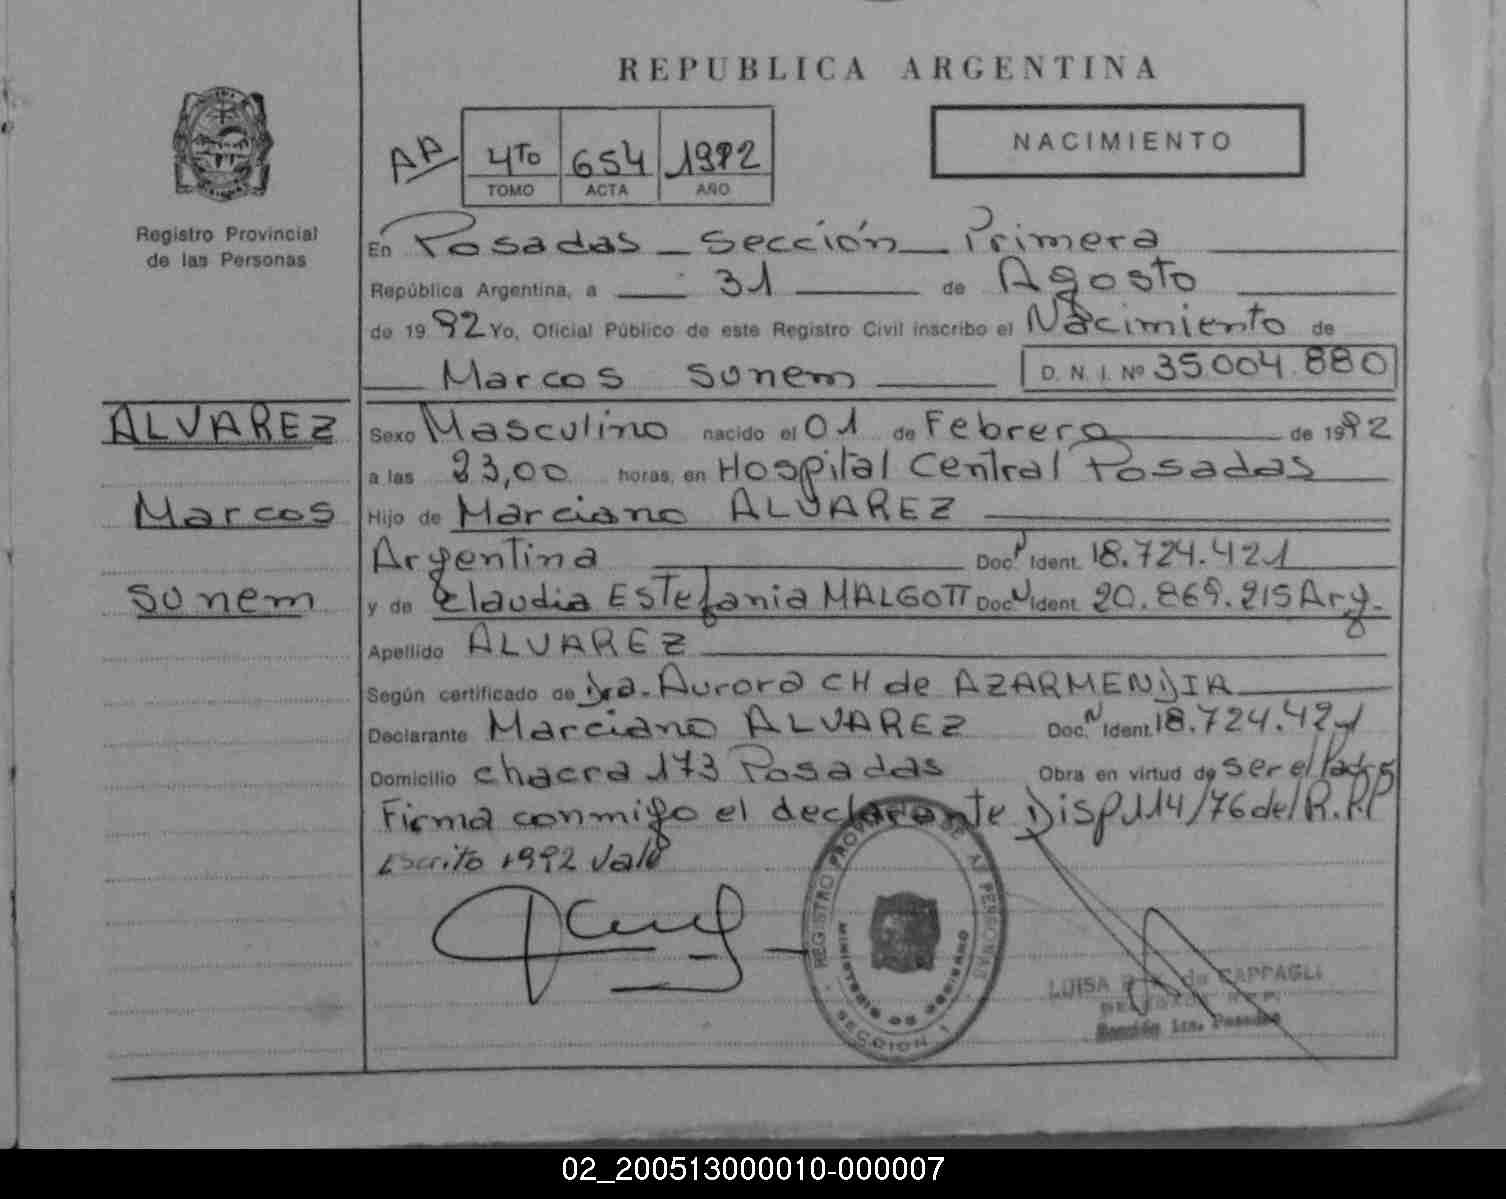 REPUBLICA ARGENTINA
AA
4To 654 1992
TOMO ACTA AÑO
NACIMIENTO
Registro Provincial
de las Personas
En Posadas - Sección - Primera
República Argentina, a 31 de Agosto
de 1992 Yo, Oficial Público de este Registro Civil inscribo el Nacimiento de
Marcos Sunem D. N. I. Nº 35.004.880
ALVAREZ
Marcos
Sunem
Sexo Masculino nacido el 01 de Febrero de 1992
a las 23,00 horas, en Hospital Central Posadas
Hijo de Marciano ALVAREZ
Argentina Doc. N Ident. 18.724.421
y de Claudia Estefania MALGOTT Doc. N Ident. 20.869.215 Arg.
Apellido ALVAREZ
Según certificado de Dra. Aurora CH de AZARMENDIA
Declarante Marciano ALVAREZ Doc. N Ident. 18.724.421
Domicilio chacra 173 Posadas Obra en virtud de ser el Padre
Firma conmigo el declarante Disp 114/76 del R.P.P
Escrito 1992 Vale
REGISTRO PROVINCIAL DE LAS PERSONAS
MINISTERIO DE GOBIERNO
SECCION 1
LUISA de CAPPAGLI
Sección 1ra. Posadas
02_200513000010-000007